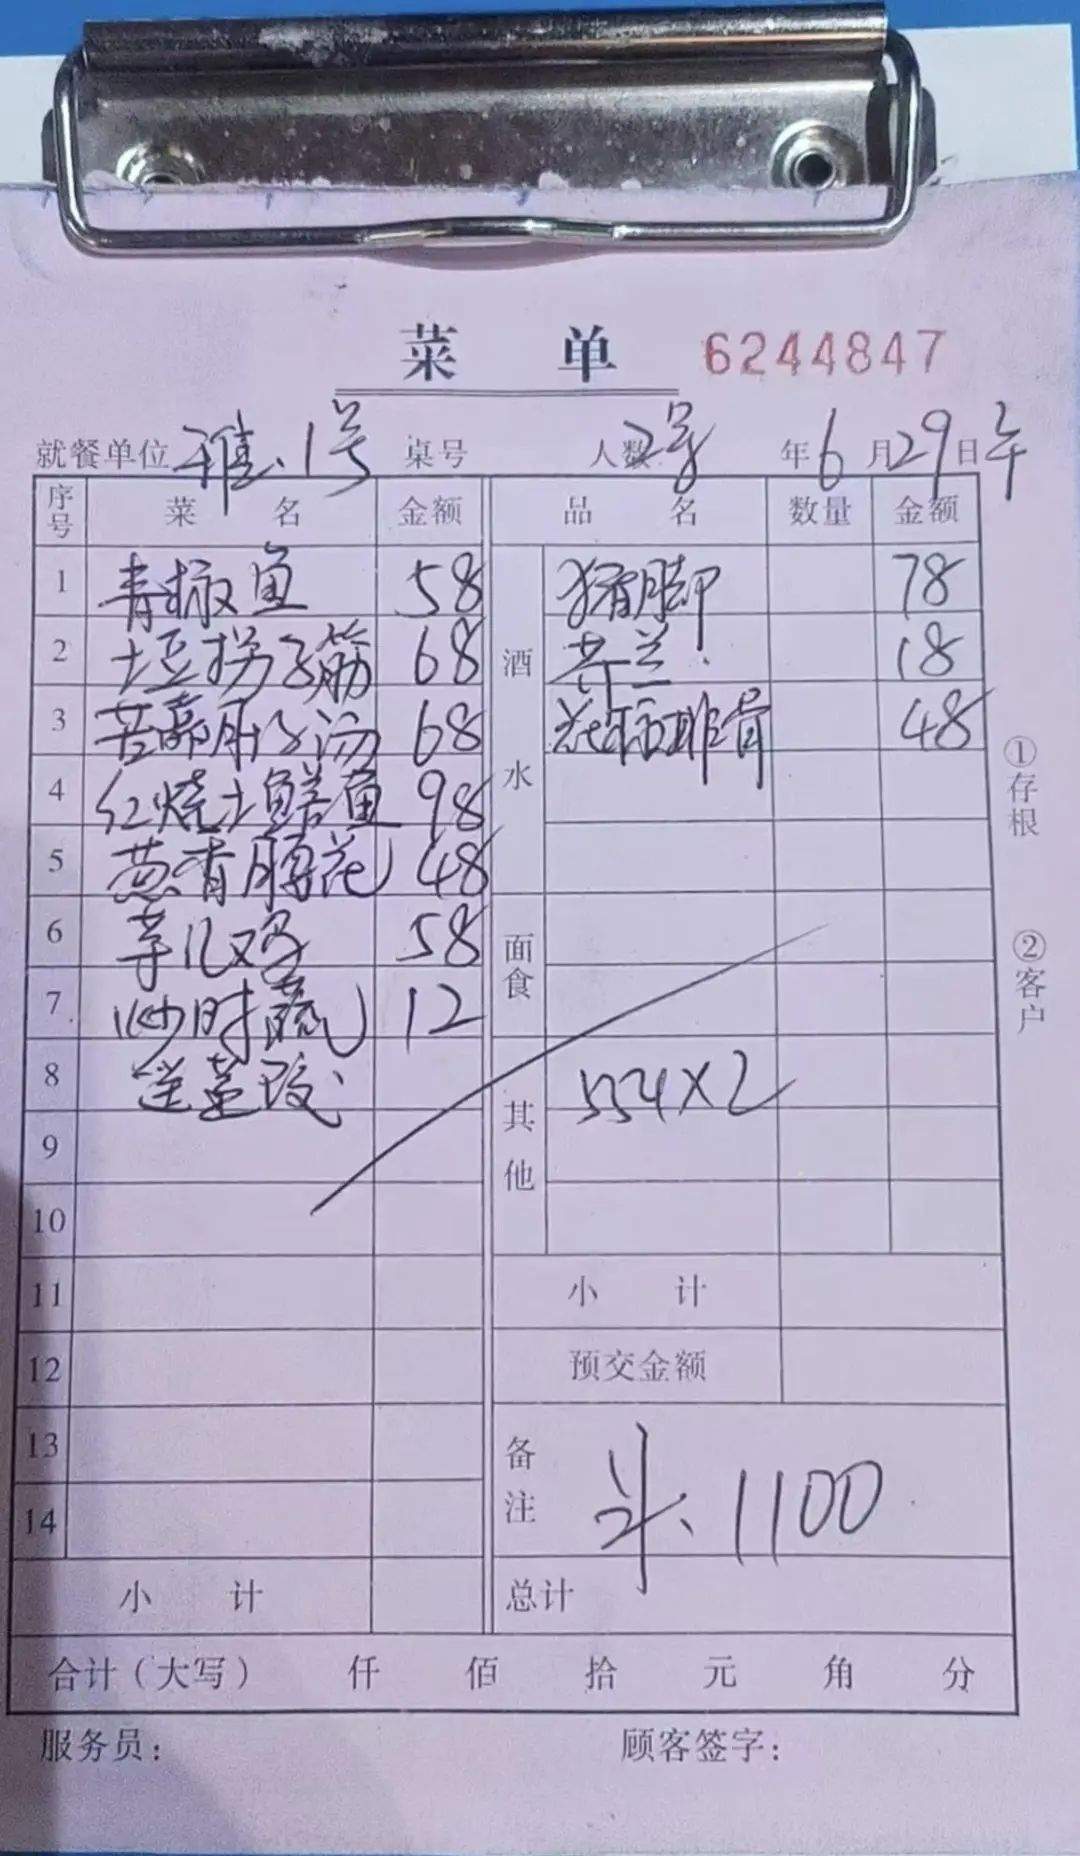 菜 单 6244847
就餐单位 雅、1号 桌号 人数 2号 年 6 月 29 日 午
序号 菜 名 金额 品 名 数量 金额
1 青椒鱼 58 酒水 猪脚 78
2 土豆拐子筋 68 18
3 苦藠肚子汤 68 排骨 48
4 红烧土鳝鱼 98
5 葱香腰花 48
6 芋儿鸡 58 面食
7 炒时蔬 12
8 其他 554×2
9
10
11 小 计
12 预交金额
13 备注 1100
14
小 计 总计
合计(大写) 仟 佰 拾 元 角 分
服务员: 顾客签字:
①存根
②客户